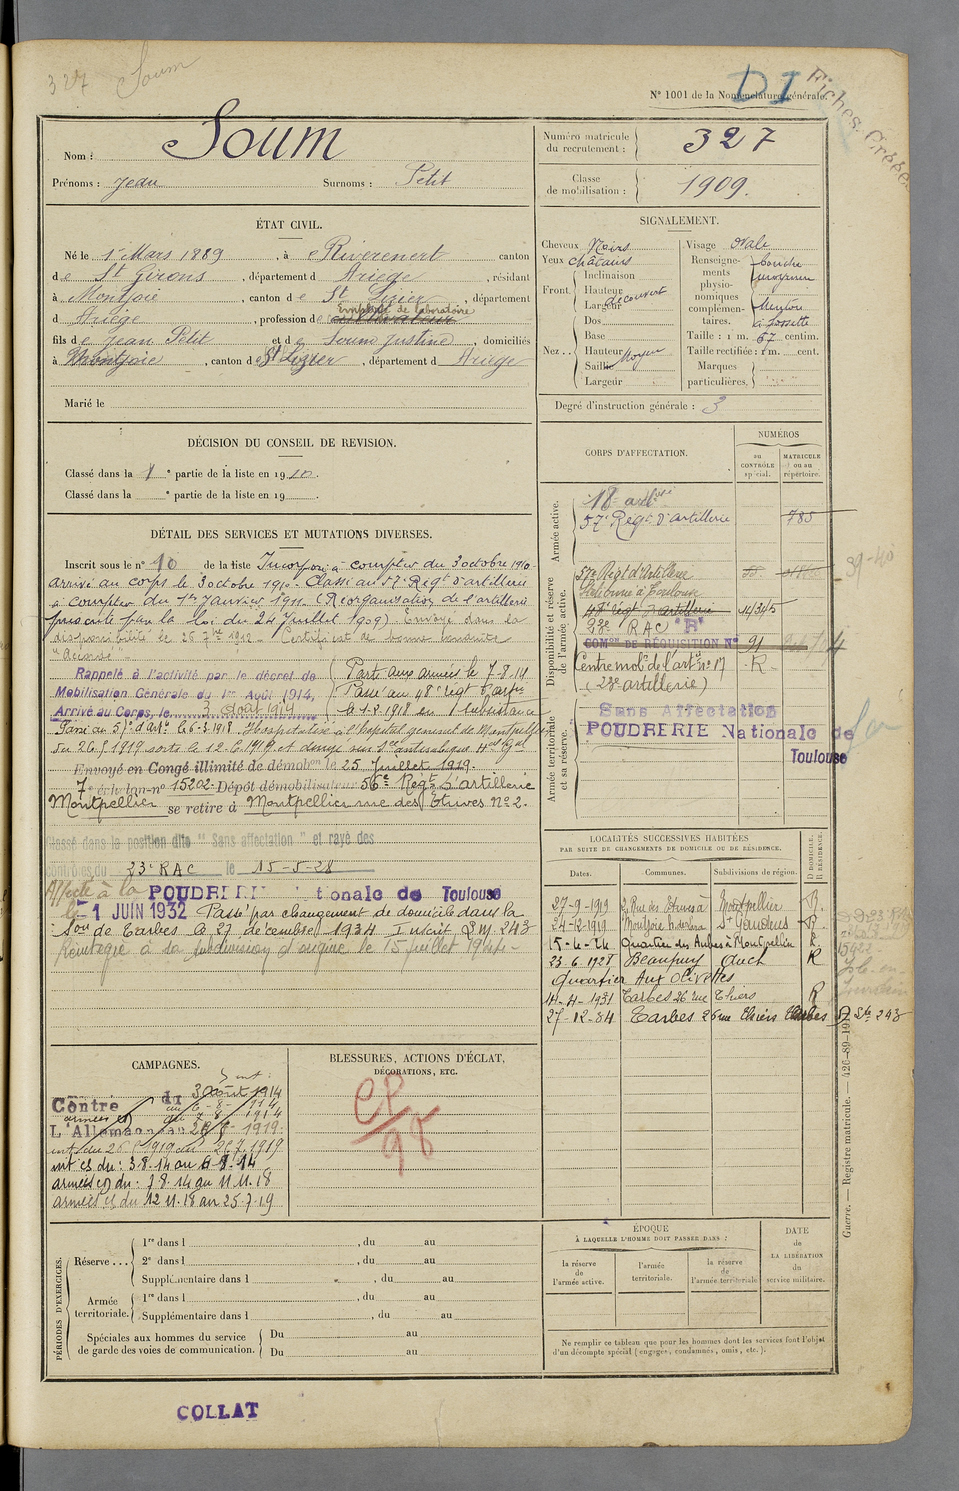 327 Soum
N° 1001 de la Nomenclature générale.
D I
Fiches
Nom : SOUM
Prénoms : Jean Surnoms : Petit
Numéro matricule du recrutement : 327
Classe de mobilisation : 1909.
ÉTAT CIVIL.
Né le 1 Mars 1889, à Riverenert canton
de St Girons, département d Ariège, résidant
à Montjoie, canton de St Lizier, département
d Ariège, profession de Employé de laboratoire
fils de Jean Petit et de Soum Justine, domiciliés
à Montjoie, canton de St Lizier, département d Ariège
Marié le
SIGNALEMENT.
Cheveux Noirs
Yeux châtains
Front. Inclinaison
Hauteur
Largeur
découvert
Nez.. Dos
Base
Hauteur
Saillie
Largeur
Moyen
Visage ovale
Renseignements physionomiques complémentaires. bouche moyenne
Menton à fossette
Taille : 1 m. 67 centim.
Taille rectifiée : 1 m. cent.
Marques particulières.
Degré d'instruction générale : 3
DÉCISION DU CONSEIL DE REVISION.
Classé dans la 1 e partie de la liste en 1910.
Classé dans la e partie de la liste en 19
CORPS D'AFFECTATION.
NUMÉROS
au CONTRÔLE spécial.
MATRICULE ou au répertoire.
Armée active.
18e
57e Regt d'artillerie 785
Disponibilité et réserve de l'armée active.
57e Regt d'Artillerie
à Toulouse
48e regt d'artillerie
23e RAC "R"
COMon DE RÉQUISITION N° 91
Centre mob. de l'art. n° 17 -R-
(23e artillerie)
Armée territoriale et sa réserve.
Sans Affectation
POUDRERIE Nationale de
Toulouse
39-40
DÉTAIL DES SERVICES ET MUTATIONS DIVERSES.
Inscrit sous le n° 10 de la liste Incorporé à compter du 3 octobre 1910
arrivé au corps le 3 octobre 1910. Classé au 57e Regt d'artillerie
à compter du 1er Janvier 1911. (Réorganisation de l'artillerie
prescrite par la loi du 24 Juillet 1909). Envoyé dans la
disponibilité le 25 7bre 1912 - Certificat de bonne conduite
"Accordé" -
Rappelé à l'activité par le décret de
Mobilisation Générale du 1er Août 1914,
Arrivé au Corps, le 3 Août 1914
Parti aux armées le 7-8-14
Passé au 48e regt d'artie
le 1-2-1918 en subsistance
Passé au 57e d'artie le 6-3-1918 Hospitalisé à l'hôpital général de Montpellier
du 26.5.1919 sorti le 12.6.1919
Envoyé en Congé illimité de démobon le 25 Juillet 1919.
7e échelon n° 15202. Dépôt démobilisateur 56e Regt d'Artillerie
Montpellier se retire à Montpellier rue des Étuves N° 2.
Classé dans la position dite "Sans affectation" et rayé des
contrôles du 23e RAC le 15-5-28
Affecté à la POUDRERIE Nationale de Toulouse
le -1 JUIN 1932 Passé par changement de domicile dans la
Son de Tarbes le 27 décembre 1934 Inscrit SM 243
Réintégré à sa subdivision d'origine le 15 juillet 1941 -
LOCALITÉS SUCCESSIVES HABITÉES
PAR SUITE DE CHANGEMENTS DE DOMICILE OU DE RÉSIDENCE.
Dates. Communes. Subdivisions de région. D DOMICILE. R RÉSIDENCE.
27-9-1919 2, Rue des Etuves à Montpellier R.
24-12-1919 Montjoie St Gaudens R.
15-4-24 Quartier des Aubes à Montpellier R.
23-6-1928 Beaupuy Auch R
Quartier Aux Olivettes
4-4-1931 Tarbes 26 rue Thiers R
27-12-34 Tarbes 26 rue Thiers Tarbes D 243
CAMPAGNES.
Contre du 3 Août 1914
L'Allemagne au 1919.
int du 26 5 1919 au 25 7 1919
int cs du : 3 8.14 au 6-8-14
armées cs du : 7 8.14 au 11.11.18
armées cs du 12 11.18 au 25.7.19
BLESSURES, ACTIONS D'ÉCLAT,
DÉCORATIONS, ETC.
CP/98
PÉRIODES D'EXERCICES.
Réserve... 1re dans l , du au
2e dans l , du au
Supplémentaire dans l , du au
Armée territoriale. 1re dans l , du au
Supplémentaire dans l , du au
Spéciales aux hommes du service de garde des voies de communication. Du au
Du au
ÉPOQUE
À LAQUELLE L'HOMME DOIT PASSER DANS :
la réserve de l'armée active.
l'armée territoriale.
la réserve de l'armée territoriale
DATE de LA LIBÉRATION du service militaire.
Ne remplir ce tableau que pour les hommes dont les services font l'objet
d'un décompte spécial (engagés, condamnés, omis, etc.).
Guerre. — Registre matricule. — 426-89-19
COLLAT